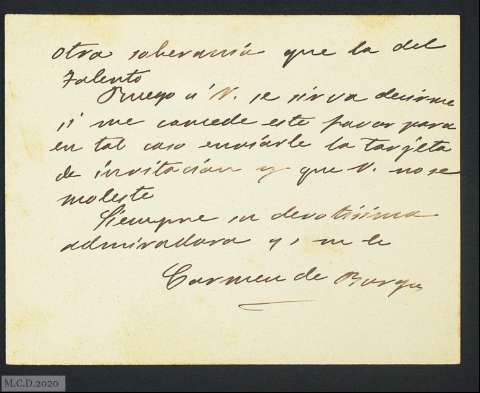 otra soberanía que la del
Talento
Ruego á V. se sirva decirme
si me concede este favor para
en tal caso enviarle la tarjeta
de invitación y que V. no se
moleste
Siempre su devotísima
admiradora y
Carmen de Burgos
M.C.D.2020